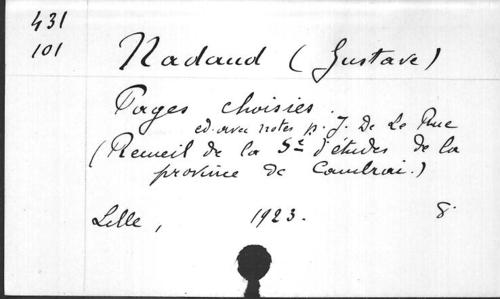 431
101
Nadaud (Gustave)
Pages choisies.
ed. avec notes p. J. De Le Rue
(Recueil de la Sté d'études de la
province de Cambrai.)
Lille, 1923. 8.